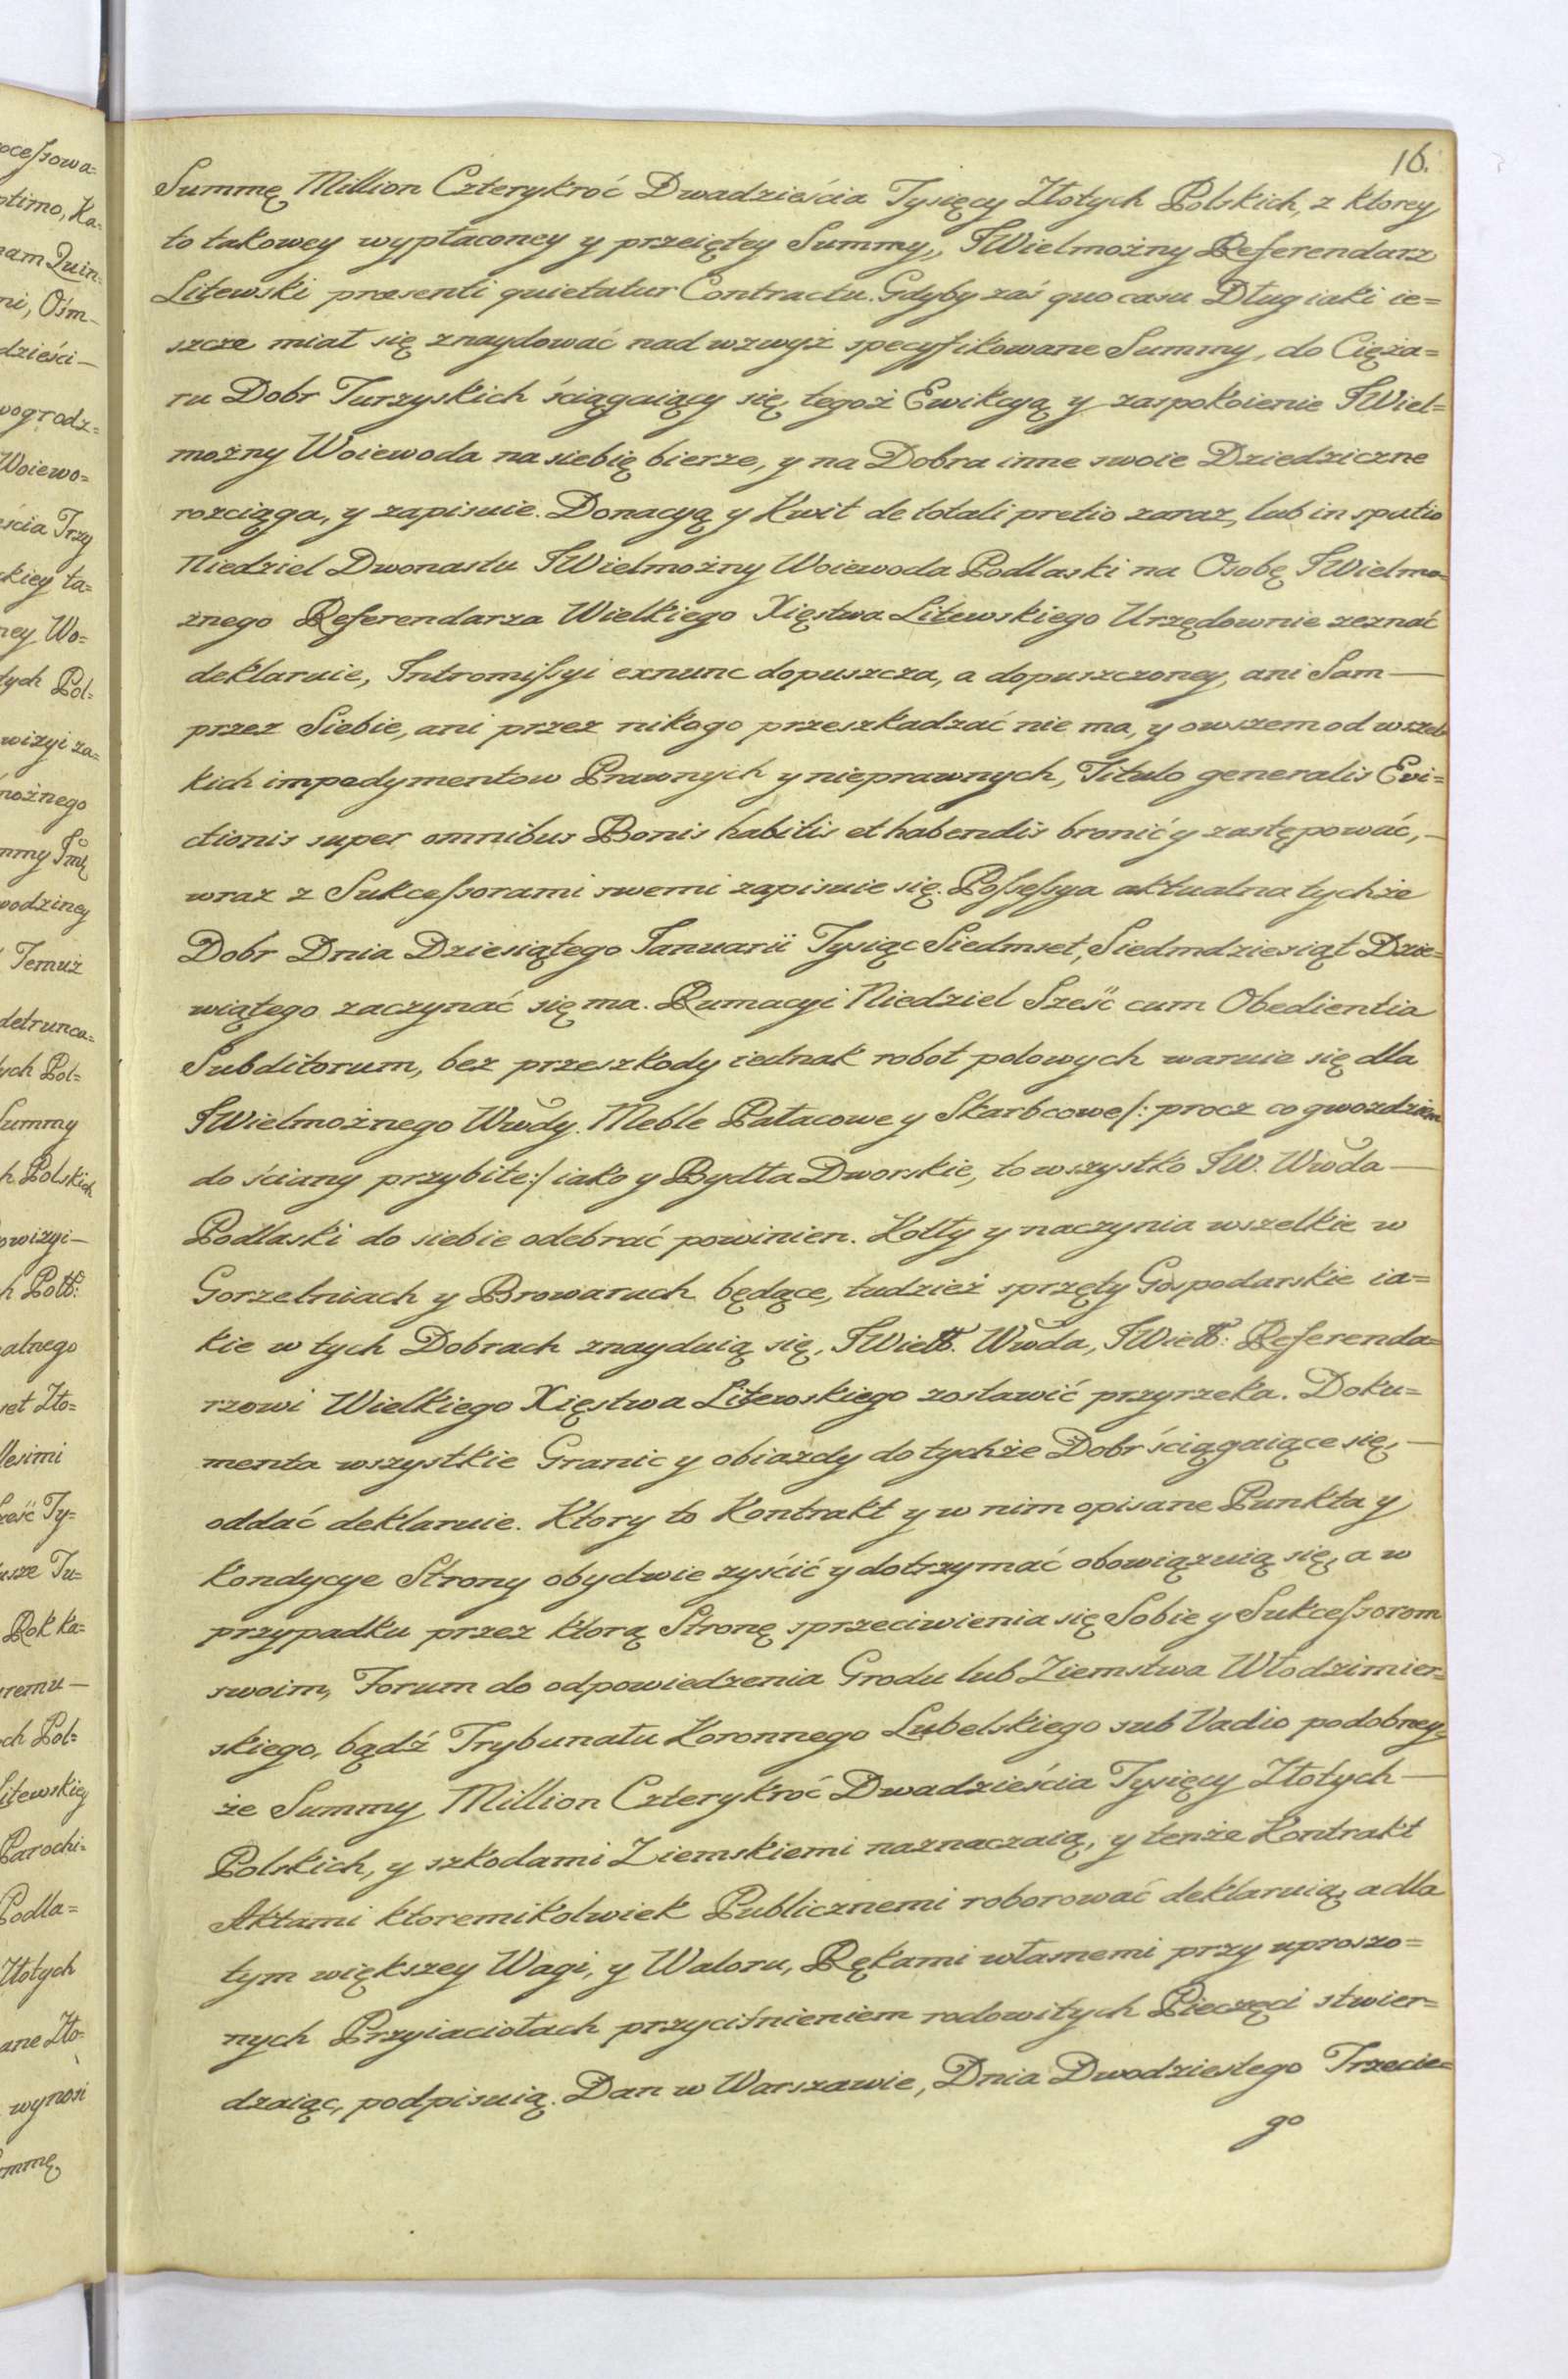 16.
Summę Million Czterykroć Dwadzieścia Tysięcy Złotych Polskich, z ktorey
to takowey wypłaconey y przeiętey Summy, JWielmożny Referendarz
Litewski præsenti quietatur Contractu. Gdyby zaś quo casu Dług iaki ie=
szcze miał się znaydować nad wzwyż specyfikowane Summy, do Cięża=
ru Dobr Turzyskich ściągaiący się, tegoż Ewikcyą y zaspokoienie JWiel=
możny Woiewoda na siebię bierze, y na Dobra inne swoie Dziedziczne
rozciąga, y zapisuie. Donacyą y Kwit de totali pretio zaraz, lub in spatio
Niedziel Dwonastu JWielmożny Woiewoda Podlaski na Osobę JWielmo=
żnego Referendarza Wielkiego Xięstwa Litewskiego Urzędownie zeznać
deklaruie, Intromissyi exnunc dopuszcza, a dopuszczoney, ani Sam —
przez Siebie, ani przez nikogo przeszkadzać nie ma, y owszem od wszel=
kich impedymentow Prawnych y nieprawnych, Titulo generalis Evi=
ctionis super omnibus Bonis habitis et habendis bronić y zastępować, —
wraz z Sukcessorami swemi zapisuie się. Possessya aktualna tychże
Dobr Dnia Dziesiątego Ianuarii Tysiąc Siedmset, Siedmdziesiąt Dzie=
wiątego zaczynać się ma. Rumacyi Niedziel Sześć cum Obedientia
Subditorum, bez przeszkody iednak robot polowych waruie się dla
JWielmożnego Wwdy. Meble Pałacowe y Skarbcowe /: procz co gwozdziem
do ściany przybite :/ iako y Bydła Dworskie, to wszystko JW. Wwda —
Podlaski do siebie odebrać powinien. Kotły y naczynia wszelkie w
Gorzelniach y Browarach będące, tudzież sprzęty Gospodarskie ia=
kie w tych Dobrach znayduią się, JWielł. Wwda, JWielł: Referenda=
rzowi Wielkiego Xięstwa Litewskiego zostawić przyrzeka. Doku=
menta wszystkie Granic y obiazdy do tychże Dobr ściągaiące się, —
oddać deklaruie. Ktory to Kontrakt y w nim opisane Punkta y
Kondycye Strony obydwie zyścić y dotrzymać obowiązuią się, a w
przypadku przez ktorą Stronę sprzeciwienia się Sobie y Sukcessorom
swoim, Forum do odpowiedzenia Grodu lub Ziemstwa Włodzimier=
skiego, bądź Trybunału Koronnego Lubelskiego sub Vadio podobney=
że Summy Million Czterykroć Dwadzieścia Tysięcy Złotych —
Polskich, y szkodami Ziemskiemi naznaczaią, y tenże Kontrakt
Aktami ktoremikolwiek Publicznemi roborować deklaruią, a dla
tym większey Wagi, y Waloru, Rękami własnemi przy uproszo=
nych Przyiaciołach przyciśnieniem rodowitych Pieczęci stwier=
dzaiąc, podpisuią. Dan w Warszawie, Dnia Dwodziestego Trzecie=
go